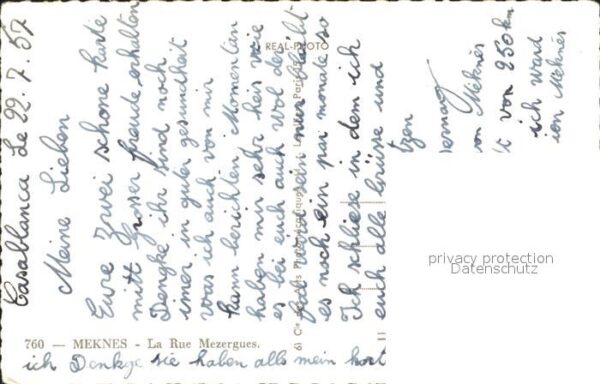 Casablanca Le 22.7.57
Meine Lieben
Eure zwei schöne karte
mitt grosser freude erhalten
Dengke ihr sind noch
imer in guter gesundheit
was ich auch von mir
kann berichten Momentan
haben mir sehr heis wie
es bei euch auch wol der
fach wirt sein nur bleibt
es noch ein par monate so
Ich schliese in dem ich
euch alle Grüse und
tzen
von Meknès
't von 250 km
ich ward
ion Meknès
REAL-PHOTO
privacy protection
Datenschutz
760 — MEKNES - La Rue Mezergues.
ich Denkge sie haben alls mein kart